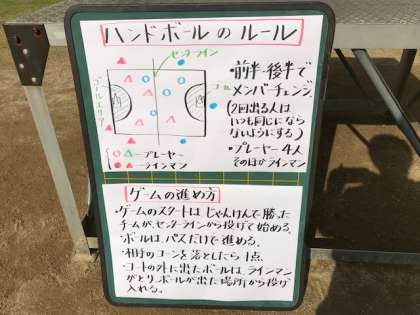 ハンドボールのルール
センターライン
ゴールエリア
ゴール
○△ープレーヤー
●▲ーラインマン
・前半・後半で
メンバーチェンジ。
(2回出る人は
いつも同じになら
ないようにする)
・プレーヤー4人
そのほかラインマン
ゲームの進め方
・ゲームのスタートはじゃんけんで勝った
チームが、センターラインから投げて始める。
・ボールは、パスだけで進める。
・相手のコーンを落としたら1点。
・コートの外に出たボールは、ラインマン
がとり、ボールが出た場所から投げ
入れる。